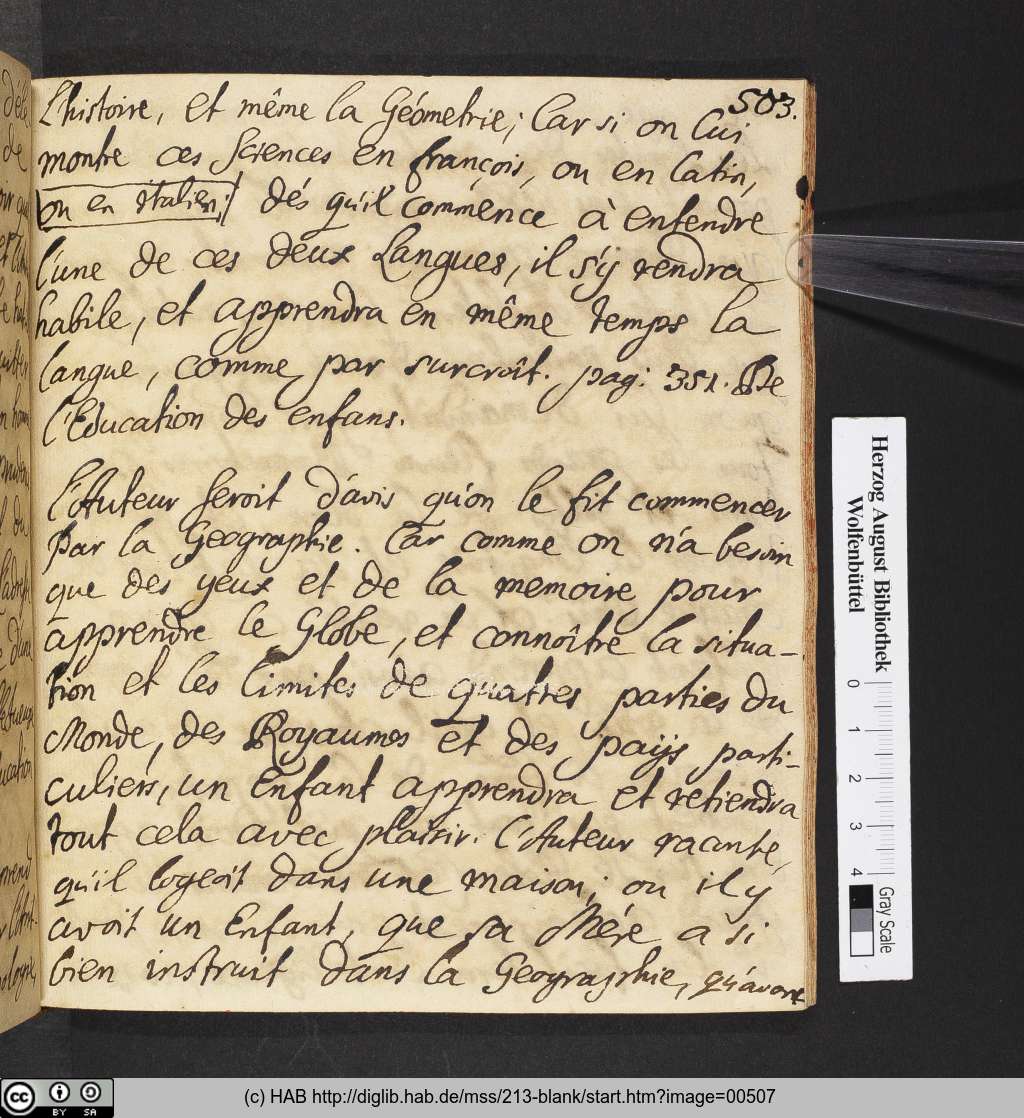 503.
L'histoire, et même la Géometrie; Car si on lui
montre ces Sciences en françois, ou en latin,
ou en Italien; dés qu'il commence à entendre
l'une de ces deux Langues, il s'y rendra
habile, et apprendra en même temps la
langue, comme par surcroît. pag: 351. De
l'Education des enfans.
l'Auteur seroit d'avis qu'on le fit commencer
par la Geographie. Car comme on n'a besoin
que des yeux et de la memoire pour
apprendre le Globe, et connoître la situa-
tion et les limites de quatres parties du
Monde, des Royaumes et des païs parti-
culiers, un Enfant apprendra et retiendra
tout cela avec plaisir. l'Auteur raconte,
qu'il logeoit dans une maison; ou il y
avoit un Enfant, que sa Mére a si
bien instruit dans la Geographie, qu'avant
Herzog August Bibliothek
Wolfenbüttel
0 1 2 3 4
Gray Scale
cc BY SA
(c) HAB http://diglib.hab.de/mss/213-blank/start.htm?image=00507